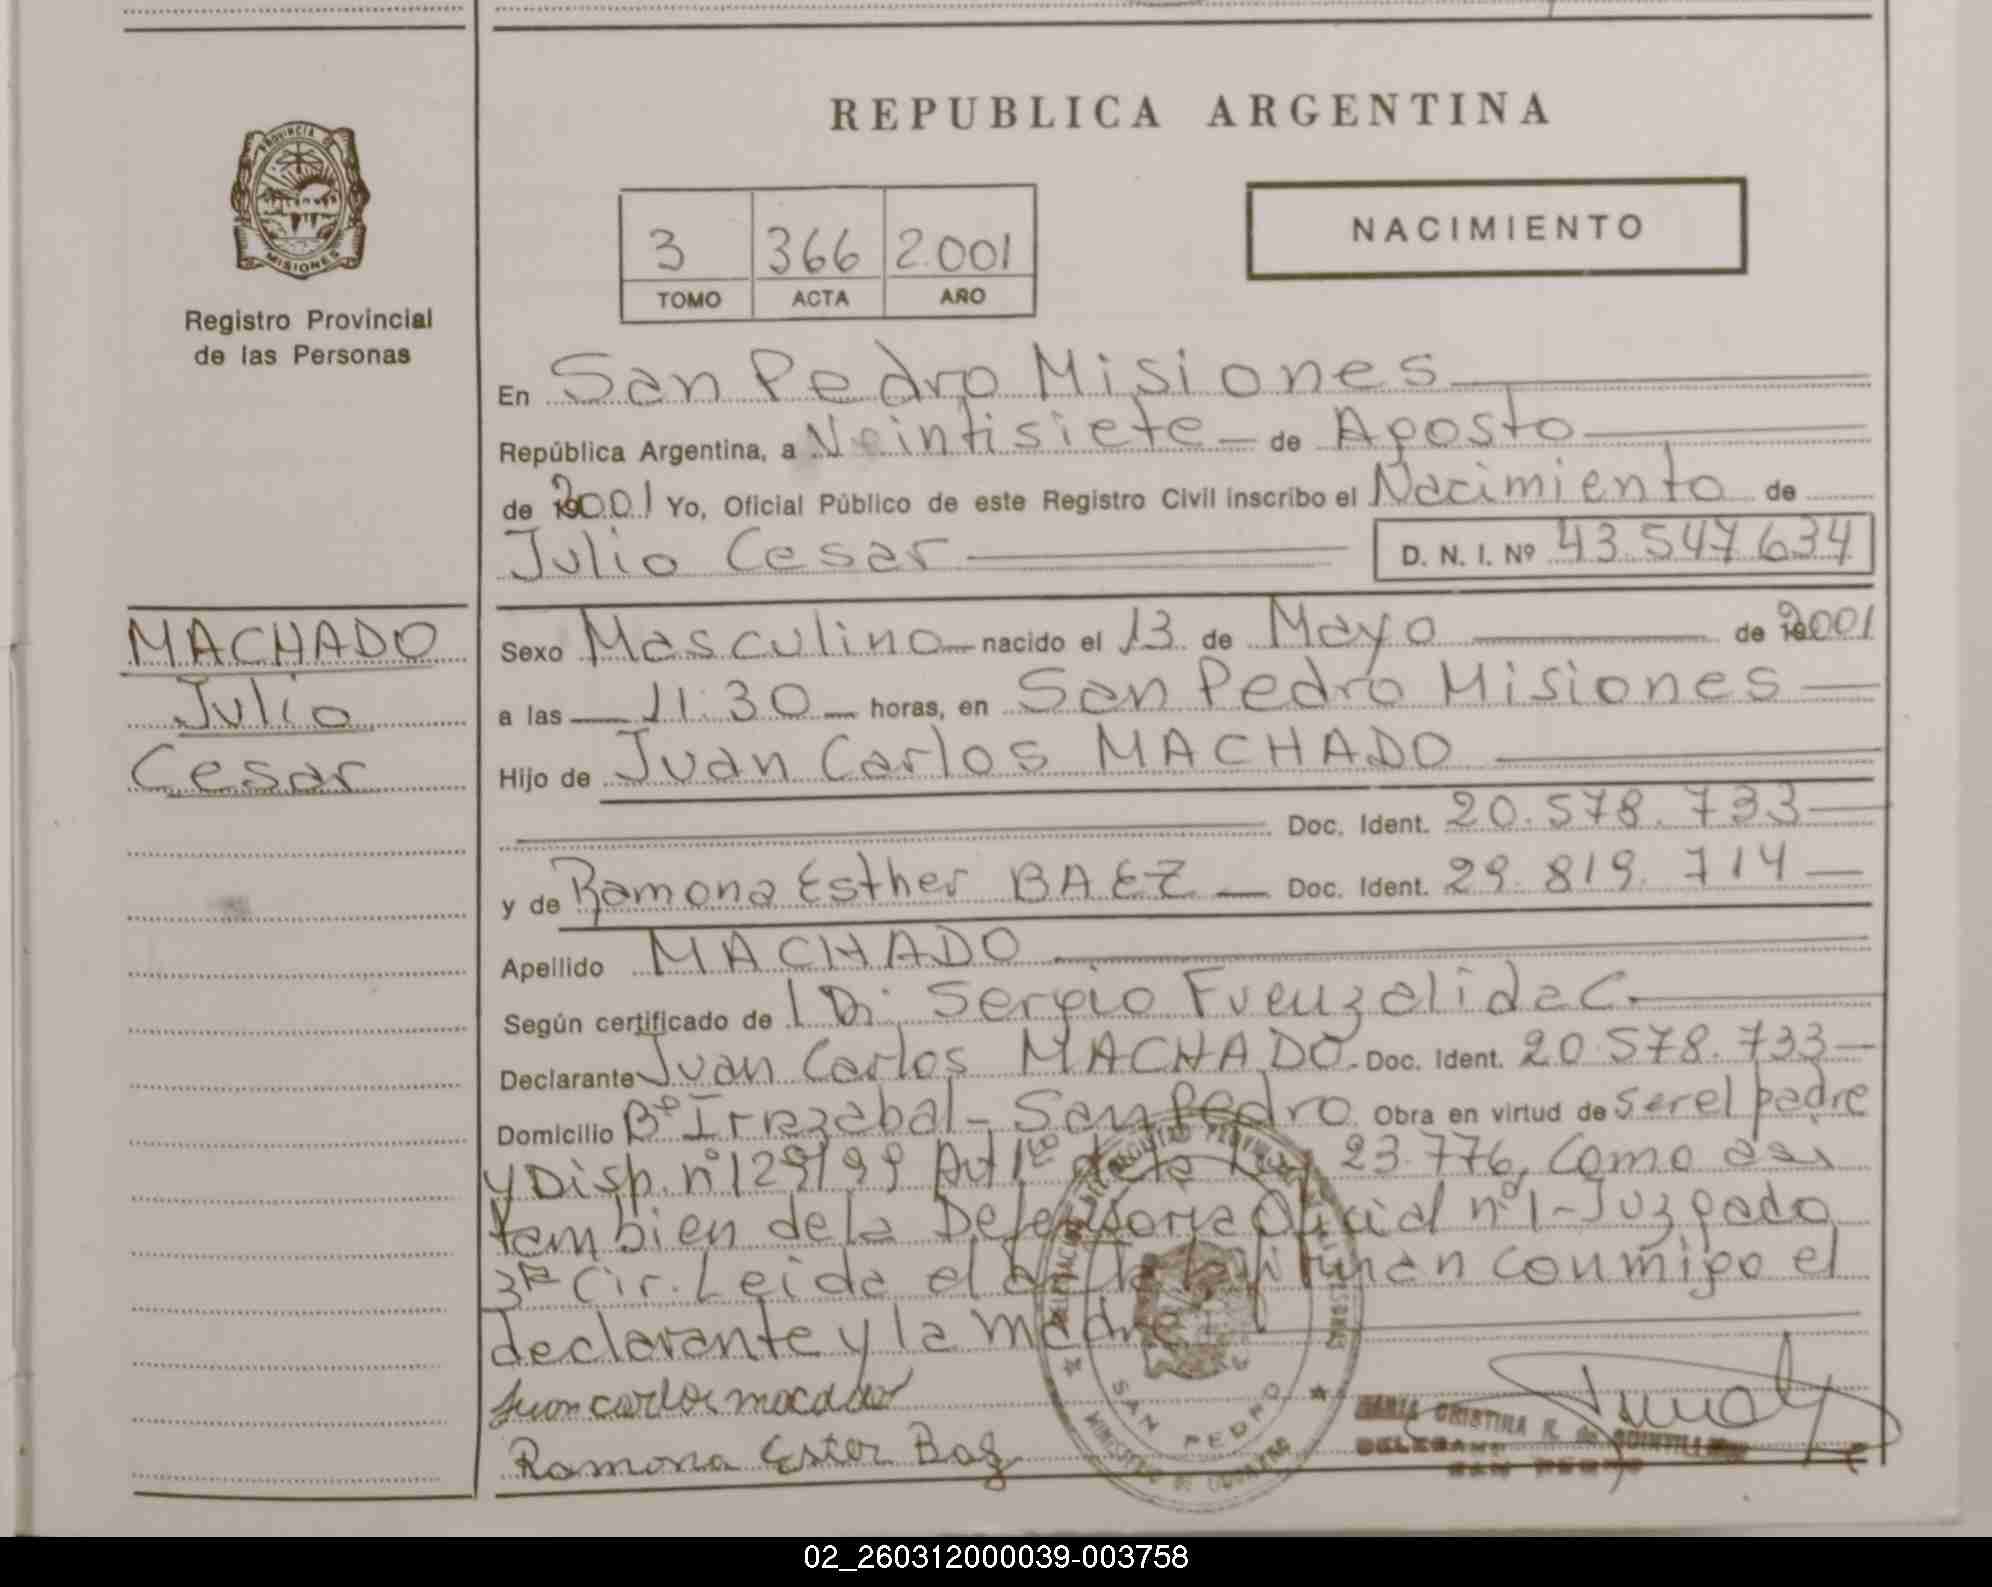 REPUBLICA ARGENTINA
PROVINCIA DE
MISIONES
Registro Provincial
de las Personas
NACIMIENTO
3 366 2.001
TOMO ACTA AÑO
En San Pedro Misiones
República Argentina, a Veintisiete de Agosto
de 2001 Yo, Oficial Público de este Registro Civil inscribo el Nacimiento de
Julio Cesar D. N. I. Nº 43.547.634
MACHADO
Julio
Cesar
Sexo Masculino nacido el 13 de Mayo de 2001
a las 11:30 horas, en San Pedro Misiones
Hijo de Juan Carlos MACHADO
Doc. Ident. 20.578.733
y de Ramona Esther BAEZ Doc. Ident. 29.819.714
Apellido MACHADO
Según certificado de Sergio Fuenzalida C.
Declarante Juan Carlos MACHADO. Doc. Ident. 20.578.733
Domicilio Bº Irrazabal - San Pedro Obra en virtud de ser el padre
y Disp. nº 129/99 Art 1º de la Ley 23.776, como asi
tambien de la Defensoria Oficial nº 1 - Juzgado
3ra Cir. Leida el acta la firman conmigo el
declarante y la madre
Juan carlos macador
Ramona Ester Baz
SAN PEDRO
MINISTERIO DE GOBIERNO
MARIA CRISTINA R. de QUINTILLAN
SAN PEDRO
02_260312000039-003758